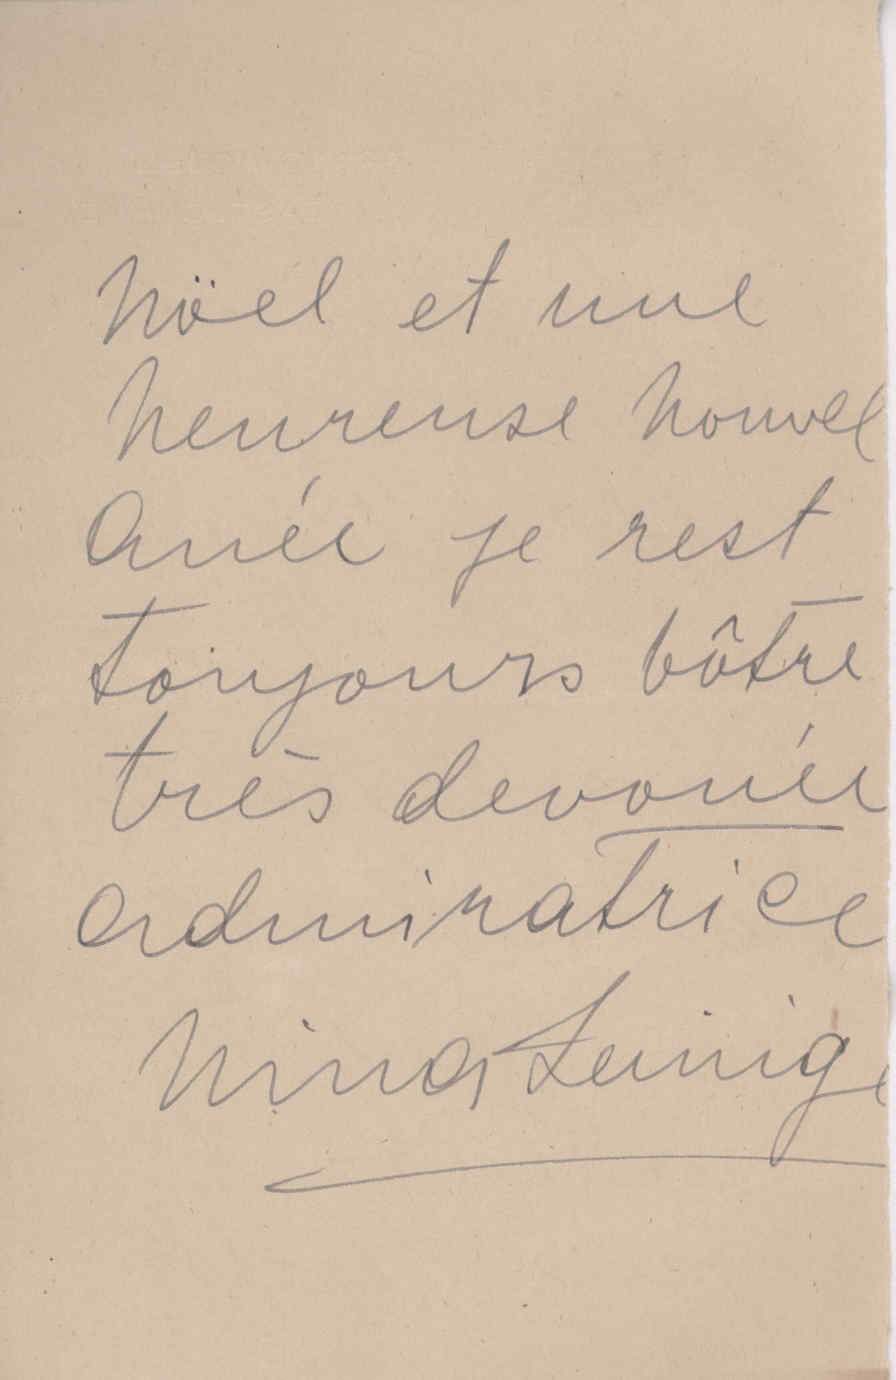 Nöel et une
heureuse nouvel
Anée je rest
toujours vôtre
très devouée
admiratrice
Nina